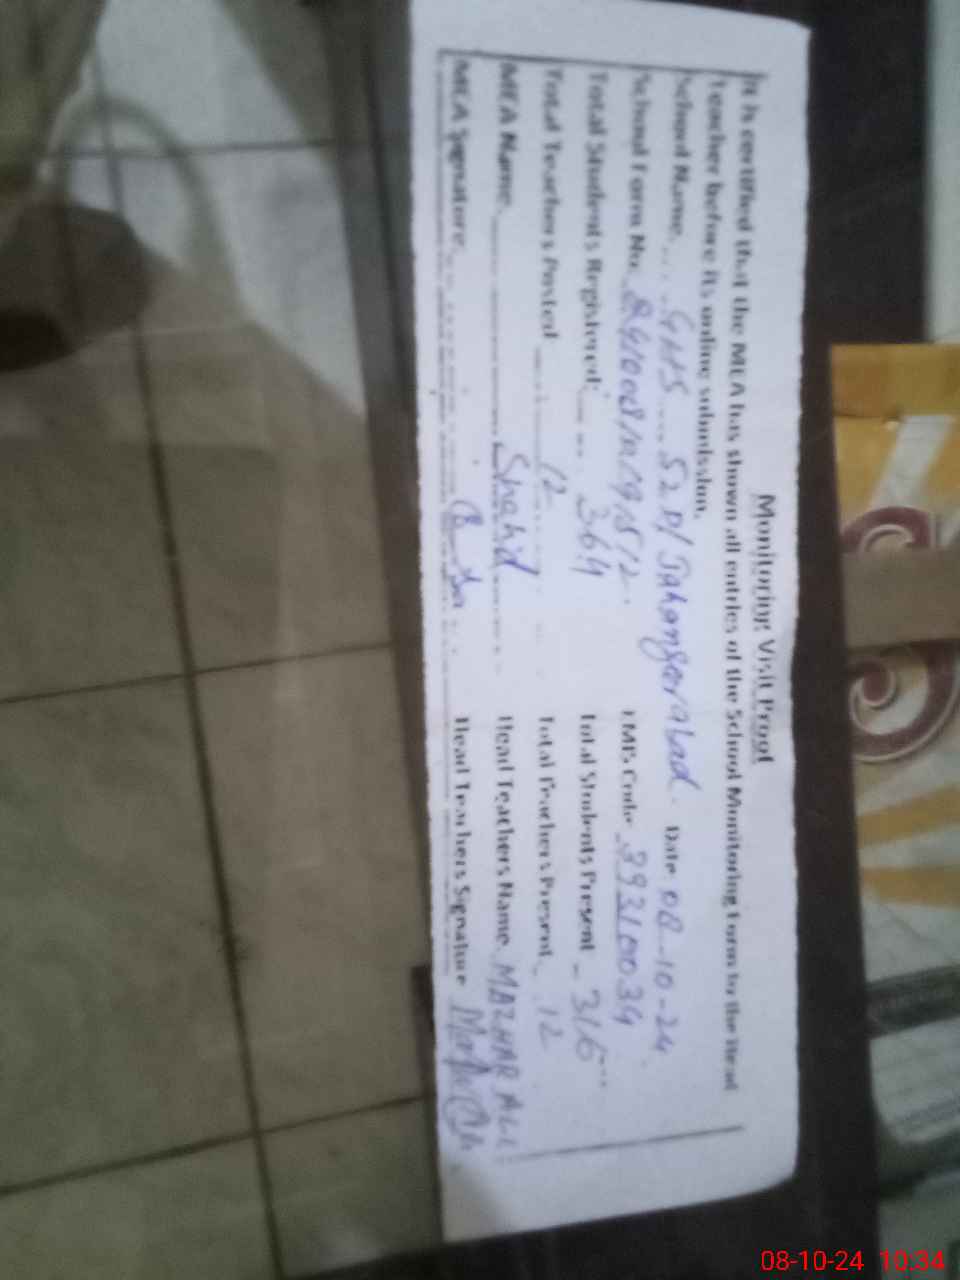 Monitoring Visit Proof
It is certified that the MEA has shown all entries of the School Monitoring Form to the Head
Teacher before its online submission.
School Name GHS 52 D/ Jahangeerabad. Date 08-10-24
School Form No. EMIS Code 39310034
Total Students Registered: 364 Total Students Present 316
Total Teachers Posted 12 Total Teachers Present 12
MEA Name Shahid Head Teachers Name MAZHAR ALI
MEA Signature Head Teachers Signature
08-10-24 10:34